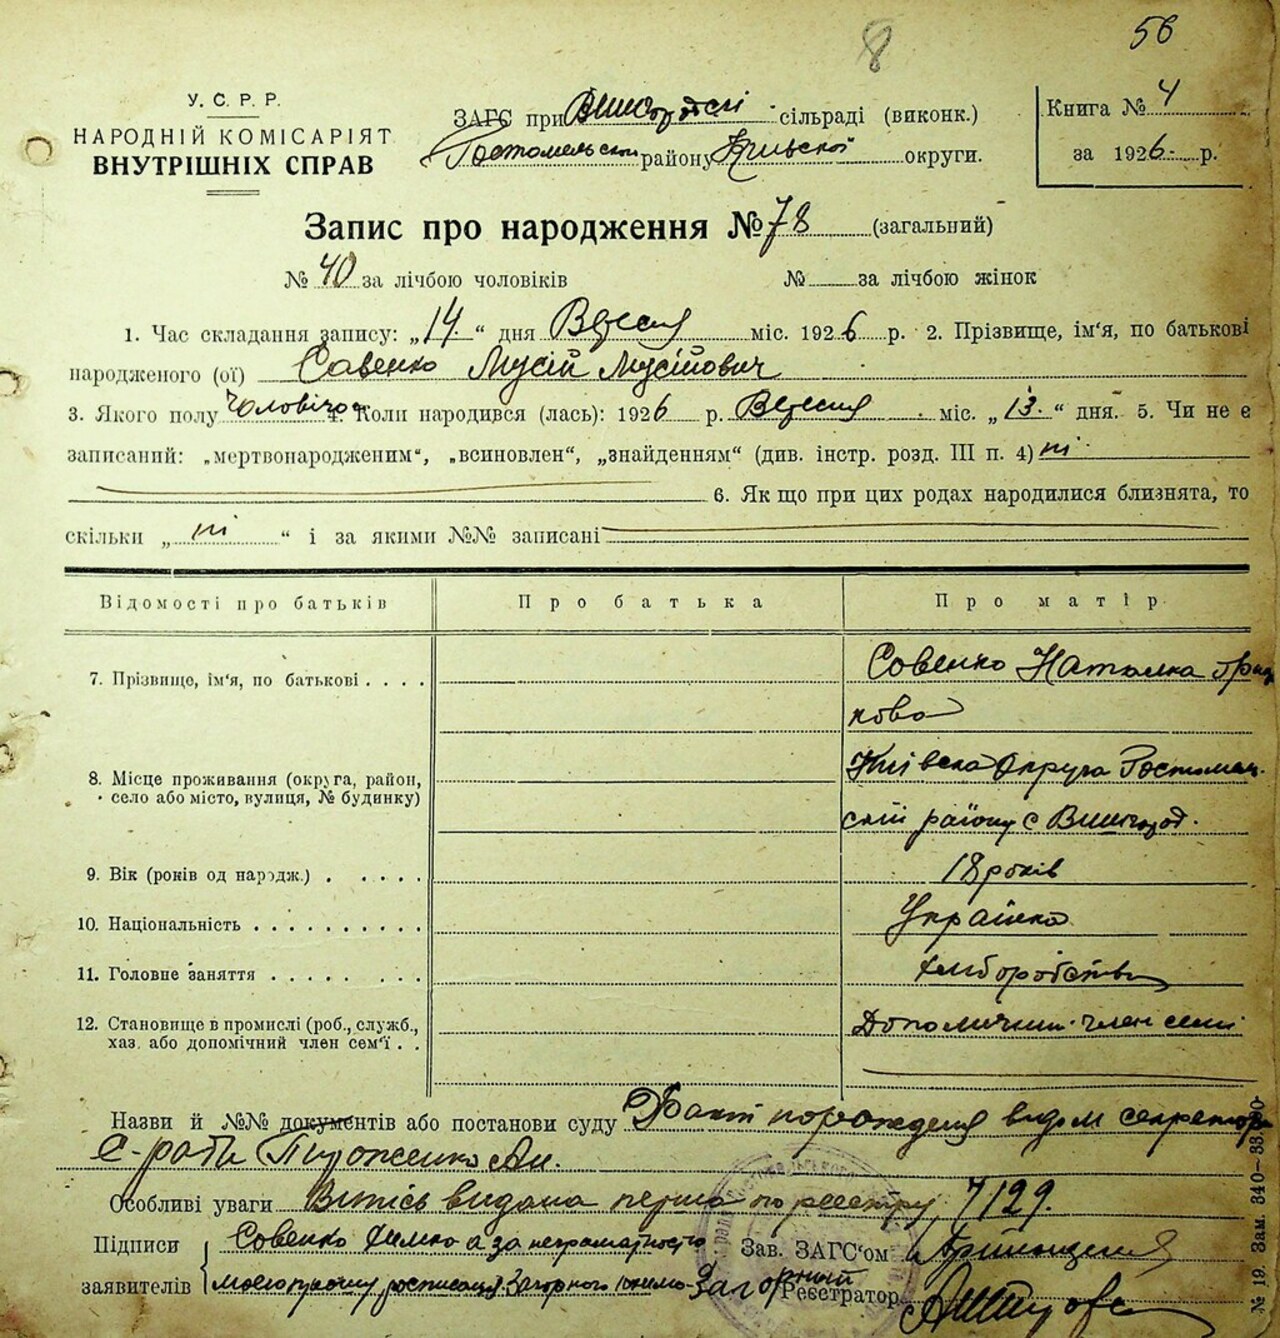 56
8
У. С. Р. Р.
НАРОДНІЙ КОМІСАРІЯТ
ВНУТРІШНІХ СПРАВ
ЗАГС при Вишгородскі сільраді (виконк.)
Гостомельском району Київської округи.
Книга № 4
за 1926 р.
Запис про народження № 78 (загальний)
№ 40 за лічбою чоловіків № за лічбою жінок
1. Час складання запису: „14." дня Вересня міс. 1926 р. 2. Прізвище, ім'я, по батькові
народженого (ої) Савенко Мусій Мусійович
3. Якого полу Чоловічо 4. Коли народився (лась): 1926 р. Вересня міс. „13." дня. 5. Чи не є
записаний: „мертвонародженим", „всиновлен", „знайденням" (див. інстр. розд. III п. 4) ні
6. Як що при цих родах народилися близнята, то
скільки „ні" і за якими №№ записані
Відомості про батьків Про батька Про матір
7. Прізвище, ім'я, по батькові . . . . Совенко Наталка
кова
8. Місце проживання (округа, район,
село або місто, вулиця, № будинку)
Київска Округа Гостомел.
ский району с Вишгород.
9. Вік (років од народж.) . . . . . 18 років
10. Національність . . . . . . . . . . Українка
11. Головне заняття . . . . . . . . . Хліборобство
12. Становище в промислі (роб., служб.,
хаз. або допомічний член сем'ї . .
Допомічний член семі
Назви й №№ документів або постанови суду Факт порождения видом секретор
С-ради Пироженко Ан.
Особливі уваги Випісь видана перша по реєстру, 7/29.
Підписи
заявителів
Совенко а за неграмотностю
росписався Загорного Загорний
Зав. ЗАГС'ом
Реєстратор
№ 19. Зам. 840—33.